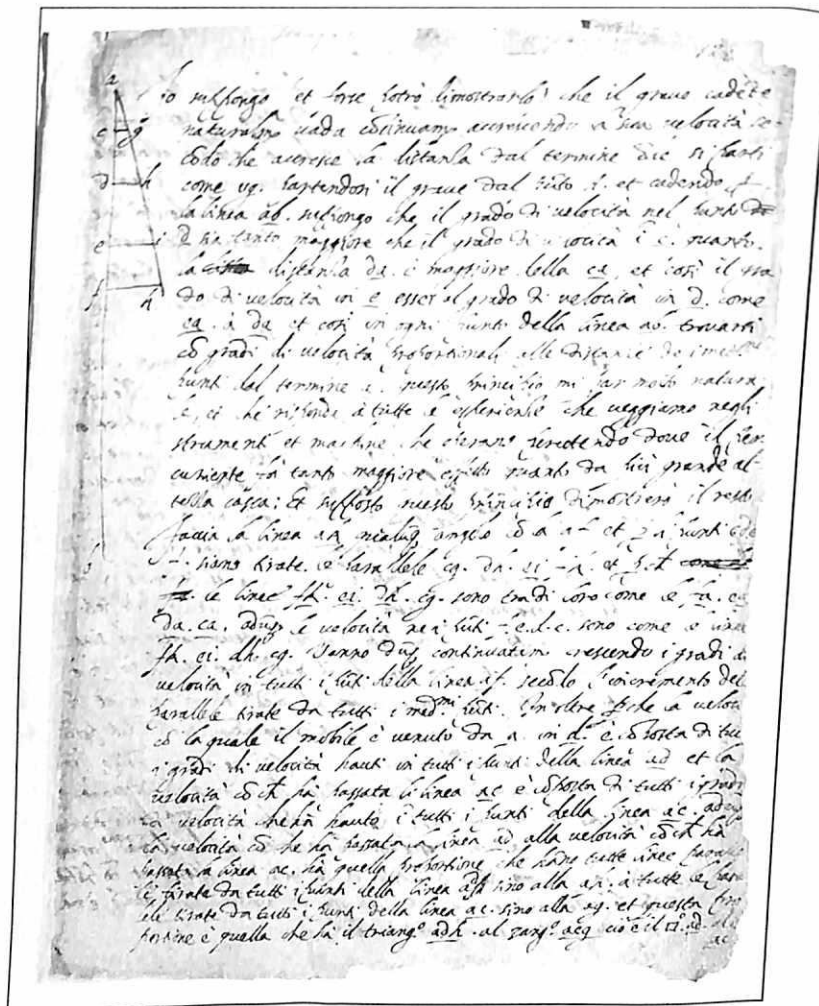 a
Io suppongo (et forse potrò dimostrarlo) che il grave cadēte
c g naturalmᵗᵉ vada cōtinuamᵗᵉ accrescendo la sua velocità se-
cōdo che accresce la distanza dal termine onde si partì
d h come v.g. partendosi il grave dal pūto a. et cadendo p
la linea ab. suppongo che il grado di velocità nel punto
e i d sia tanto maggiore che il grado di velocità ī c. quanto
la distanza da. è maggiore della ca. et così il gra
f k do di velocità in e esser al grado di velocità in d. come
ea. à da et così in ogni punto della linea ab. trovarsi
cō gradi di velocità proportionali alle distanze de i medᵐⁱ
punti dal termine a. questo principio mi par molto natura
le, et che risponda à tutte le esperienze che veggiamo negli
strumenti et machine che operano percotendo dove il per
cuziente fa tanto maggiore effetto quanto da più grande al-
tezza casca: Et supposto questo principio dimostrerò il resto
b Faccia la linea ak qualūq angolo cō la af et p li punti c.d.e.
f. siano tirate le parallele cg. dh. ei. fk. et p.chè
le linee fk. ei. dh. cg. sono tra di loro come le fa. ea
da. ca. adūq le velocità nei pūti f.e.d.c. sono come le linee
fk. ei. dh. cg. Vanno dūq continuatamᵗᵉ crescendo i gradi di
velocità in tutti i pūti della linea af. secōdo l'incremento del
parallele tirate da tutti i medᵐⁱ pūti. In oltre pche la velocità
cō la quale il mobile è venuto da a. in d. è cōposta di tutti
i gradi di velocità hauti in tutti i pūti della linea ad et la
velocità cō ch hà passata la linea ac è cōposta di tutti i gradi
di velocità che hà hauto ī tutti i punti della linea ac. adūq
la velocità cō che ha passata la linea ad alla velocità cō ch hà
passata la linea ac. hà quella proportione che hāno tutte linee paralle
le tirate da tutti i punti della linea ad sino alla ah. à tutte le paral
lele tirate da tutti i punti della linea ac. sino alla ag. et questa pro
portione è quella che hà il triangº adh. al trangº acg ciò è il □º ad.
ac